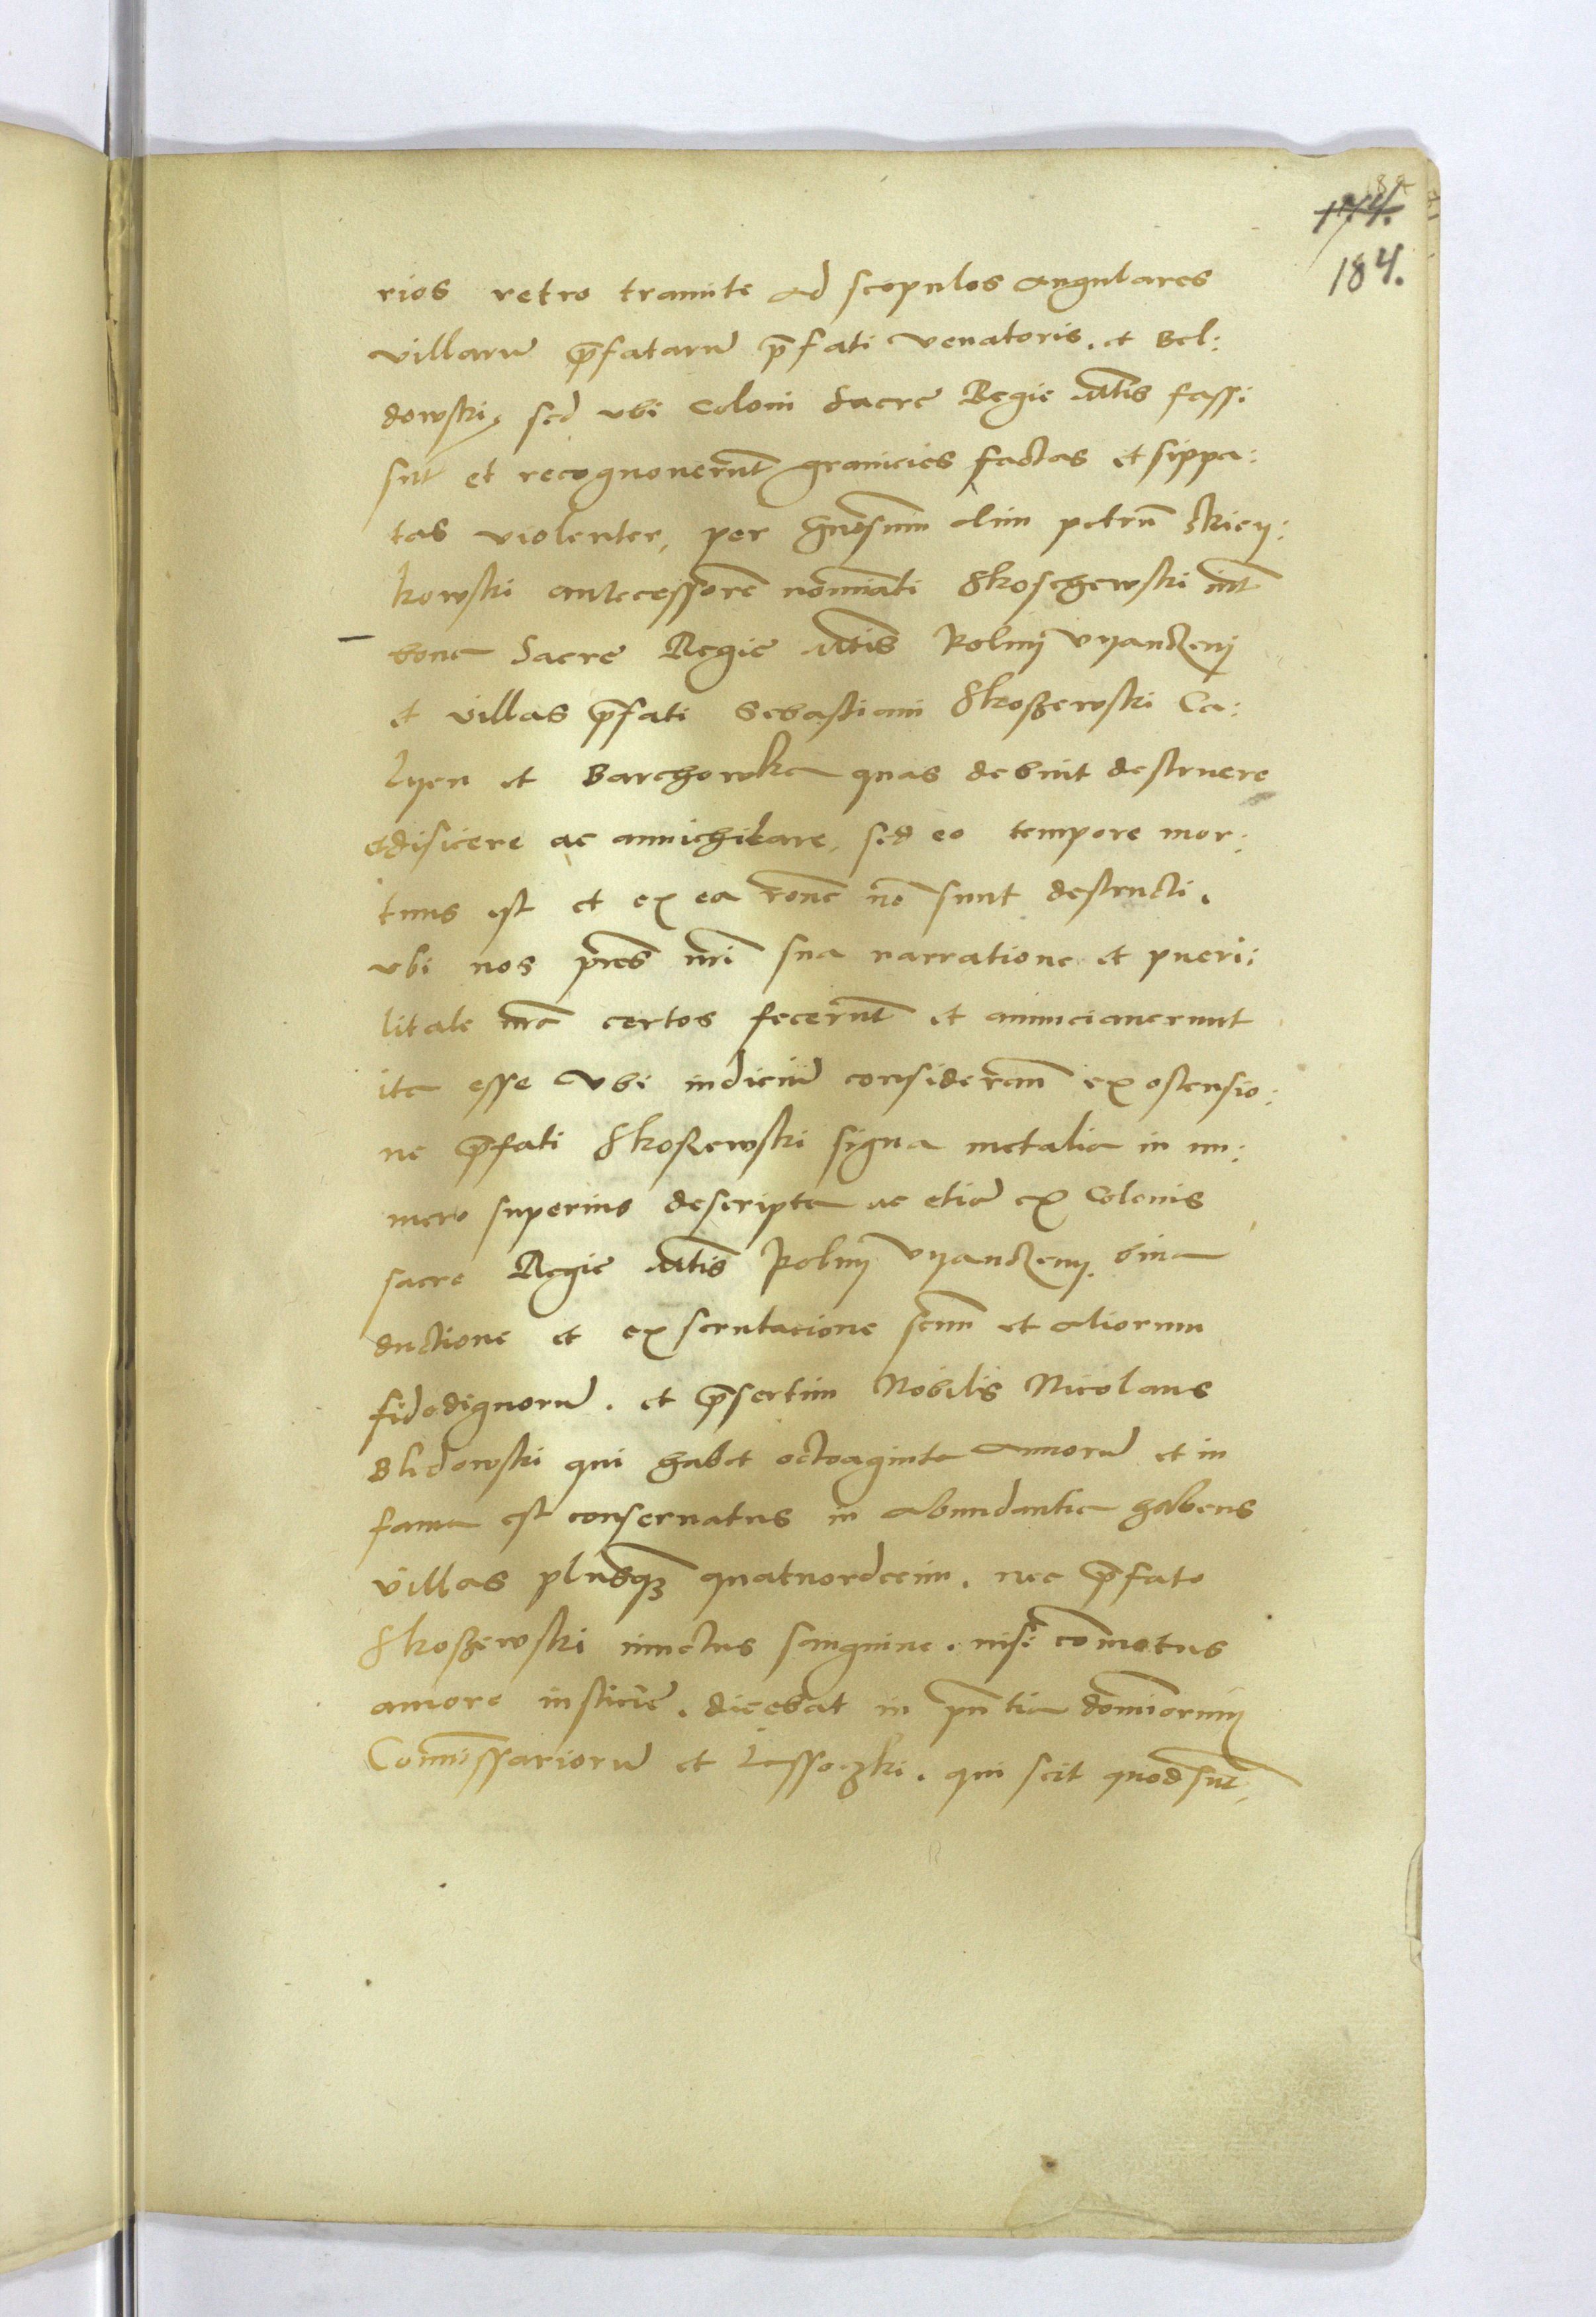 174.
184.
rios retro tramite ad scopulos angulares
villarū p̄fatarū p̄fati venatoris. et Bel:
dowski, sed vbi Coloni Sacre Regie Mtis fassi
sūt et recognouerūt granicies factas et sippa:
tas violenter, per olim petrū
kowski antecessorē nomīati Skoschewski int̄
bona Sacre Regie Mtis Kolnij
et villas p̄fati Sebastiani Skoszewski Ca:
lyen et Barchowka quas debuit destruere
edisicere ac annichilare, sed eo tempore mor:
tuus est et ex ea rōne nō sunt destructi.
vbi nos p̄res nr̄i sua narratione et pueri:
litate nr̄a certos fecerūt et annunciauerunt
ita esse Vbi indiciū ex ostensio:
ne p̄fati Skoszewski signa metalia in nu:
mero superius descripta ac etiā ex Colonis
sacre Regie Mtis Kolnij bina
ductione et ex scrutacione senū et aliorum
fidedignorū. et p̄sertim Nobilis Nicolaus
Blidowski qui habet octoaginta annorū et in
fama est conseruatus in abundantia habens
villas plusq̄ quatuordecim. nec p̄fato
Skoszewski iunctus sanguine. nisi cōmotus
amore iusticie. dicebat in pn̄tia domīorum
Com̄issariorū et Lassoczki. qui scit quod sūt,